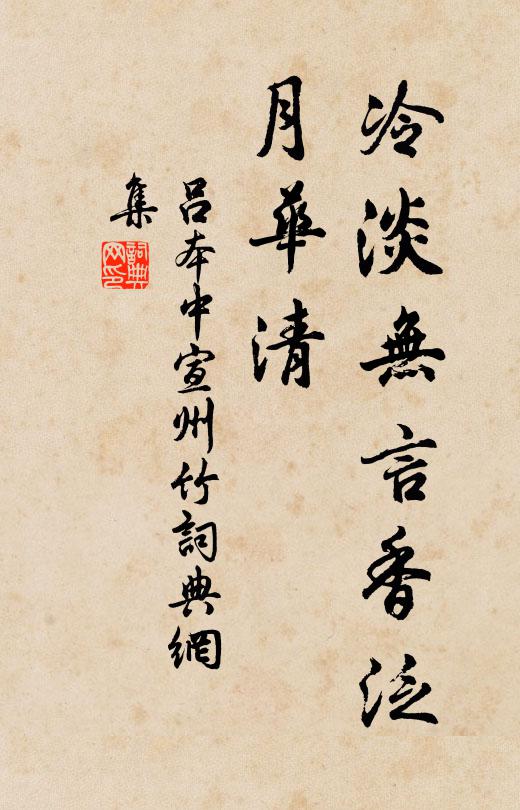 冷淡無言香泛
月華清
呂本中宣州竹詞典網
集
詞典網印